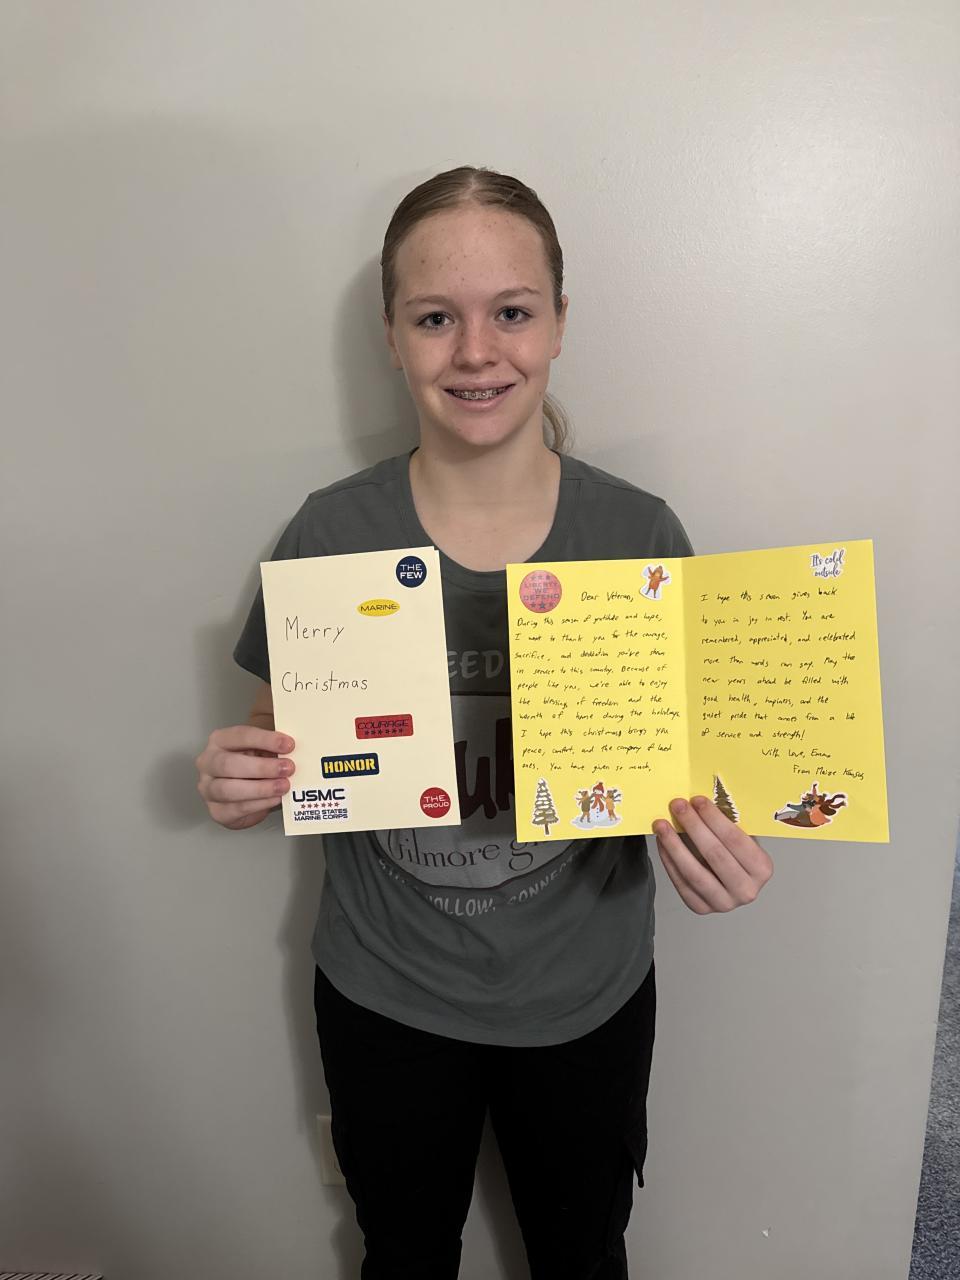 THE
FEW
MARINE
Merry
Christmas
COURAGE
HONOR
USMC
UNITED STATES
MARINE CORPS
THE
PROUD
LIBERTY
WE
DEFEND
Dear Veteran,
During this season of gratitude and hope,
I want to thank you for the courage,
sacrifice, and dedication you've shown
in service to this country. Because of
people like you, we're able to enjoy
the blessing of freedom and the
warmth of home during the holidays.
I hope this christmas brings you
peace, comfort, and the company of loved
ones. You have given so much,
It's cold
outside
I hope this season gives back
to you in joy in rest. You are
remembered, appreciated, and celebrated
more than words can say. May the
new years ahead be filled with
good health, hapiness, and the
quiet pride that comes from a life
of service and strength!
With love, Emma
From Maize Kansas
EED
Gilmore gi
HOLLOW, CONNEC